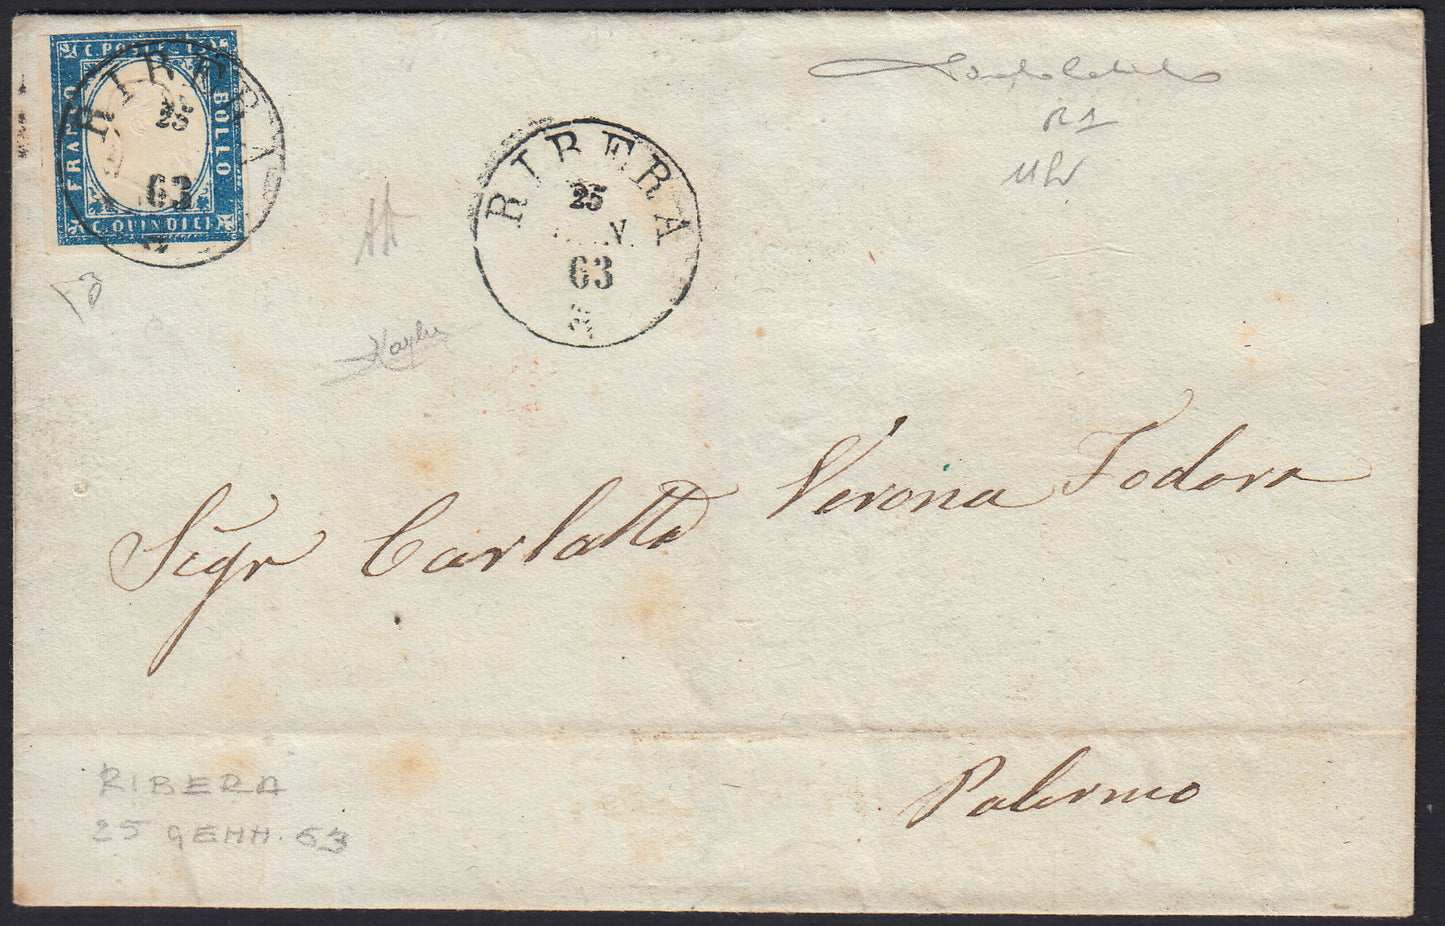 C. POSTE - 15
FRANCO
BOLLO
C. QUINDICI
RIBERA
25
63
RIBERA
25
63
R1
Sigr Carlatta Verona Todora
Palermo
RIBERA
25 GENN. 63